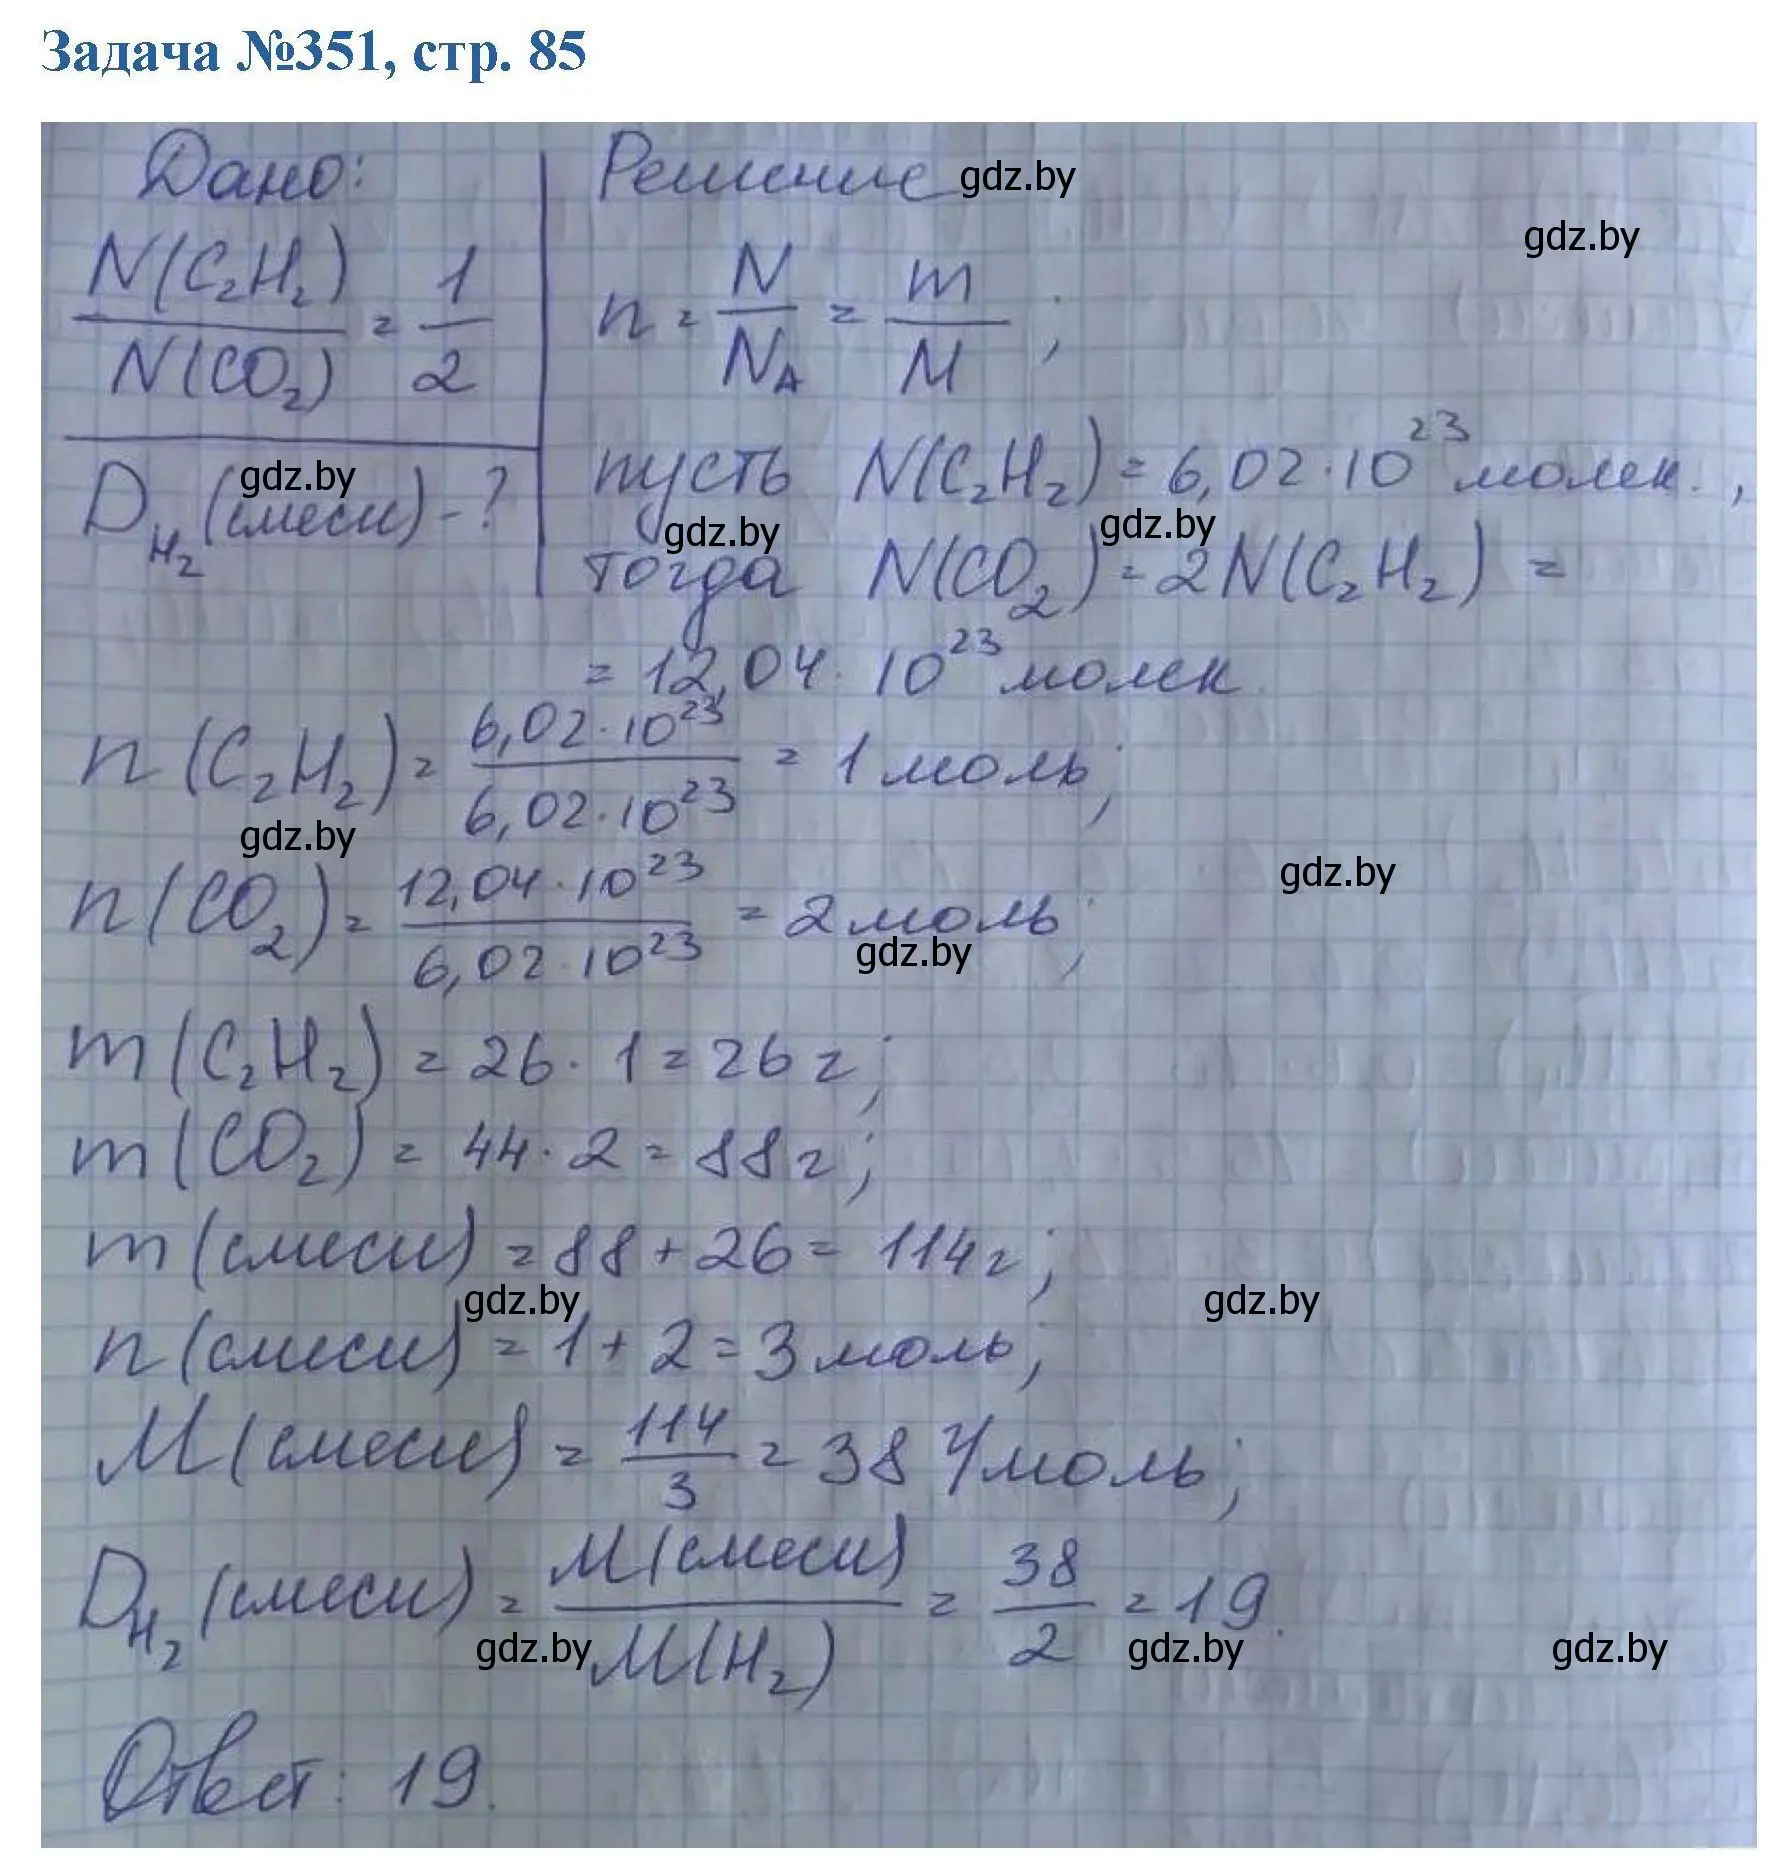 Задача №351, стр. 85
Дано:
N(C₂H₂)/N(CO₂) = 1/2
D_H₂(смеси) - ?
Решение gdz.by
gdz.by
n = N/N_A = m/M ;
пусть N(C₂H₂) = 6,02·10²³ молек.,
gdz.by
gdz.by gdz.by
тогда N(CO₂) = 2N(C₂H₂) =
= 12,04·10²³ молек.
n(C₂H₂) = 6,02·10²³/6,02·10²³ = 1 моль;
gdz.by
gdz.by
n(CO₂) = 12,04·10²³/6,02·10²³ = 2 моль;
gdz.by
m(C₂H₂) = 26·1 = 26 г;
m(CO₂) = 44·2 = 88 г;
m(смеси) = 88 + 26 = 114 г;
gdz.by gdz.by
n(смеси) = 1 + 2 = 3 моль;
M(смеси) = 114/3 = 38 г/моль;
D_H₂(смеси) = M(смеси)/M(H₂) = 38/2 = 19.
gdz.by gdz.by gdz.by
Ответ: 19.